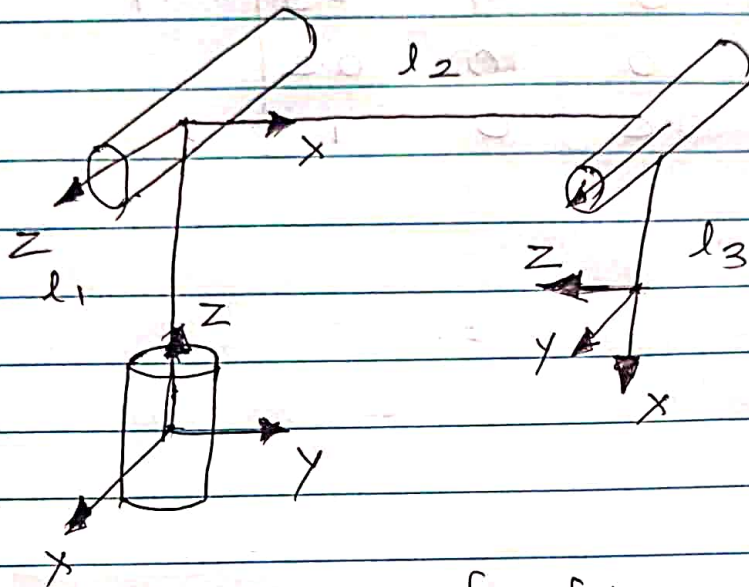 l2
X
Z
l1
Z
l3
Z
Y
X
Y
X